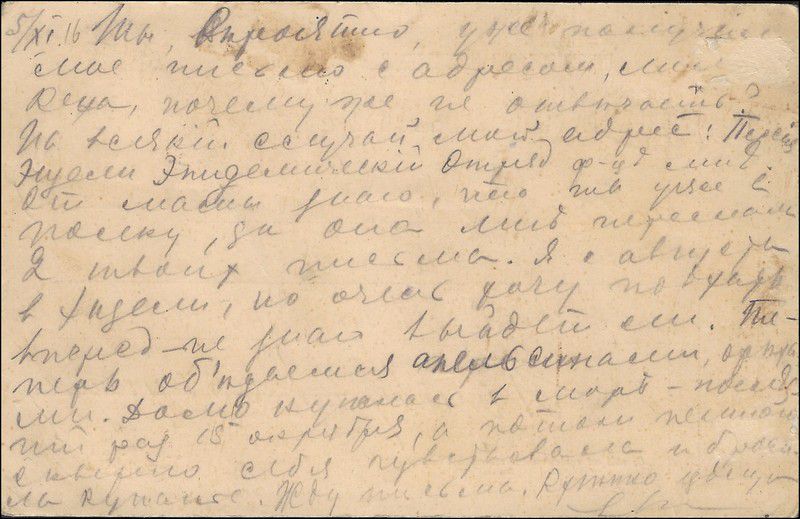 5/XI.16 Ты, вероятно, уже получил
мое письмо с адресом, милый
почему же не отвечаешь?
На всякій случай мой адрес: Персія
Энзели Эпидемическій Отряд
От мамы знаю, что ты уже в
полку, да она мне переслала
2 твоих письма. Я с августа
в Энзели, но очень хочу поехать
вперед – не знаю выйдет ли. Те-
перь об'ѣдаемся апельсинами,
ми. купалась в море – послѣд-
ній раз 15 октября, а потом немного
скверно себя чувствовала и броси-
ла купанье. Жду письма. Крепко целую